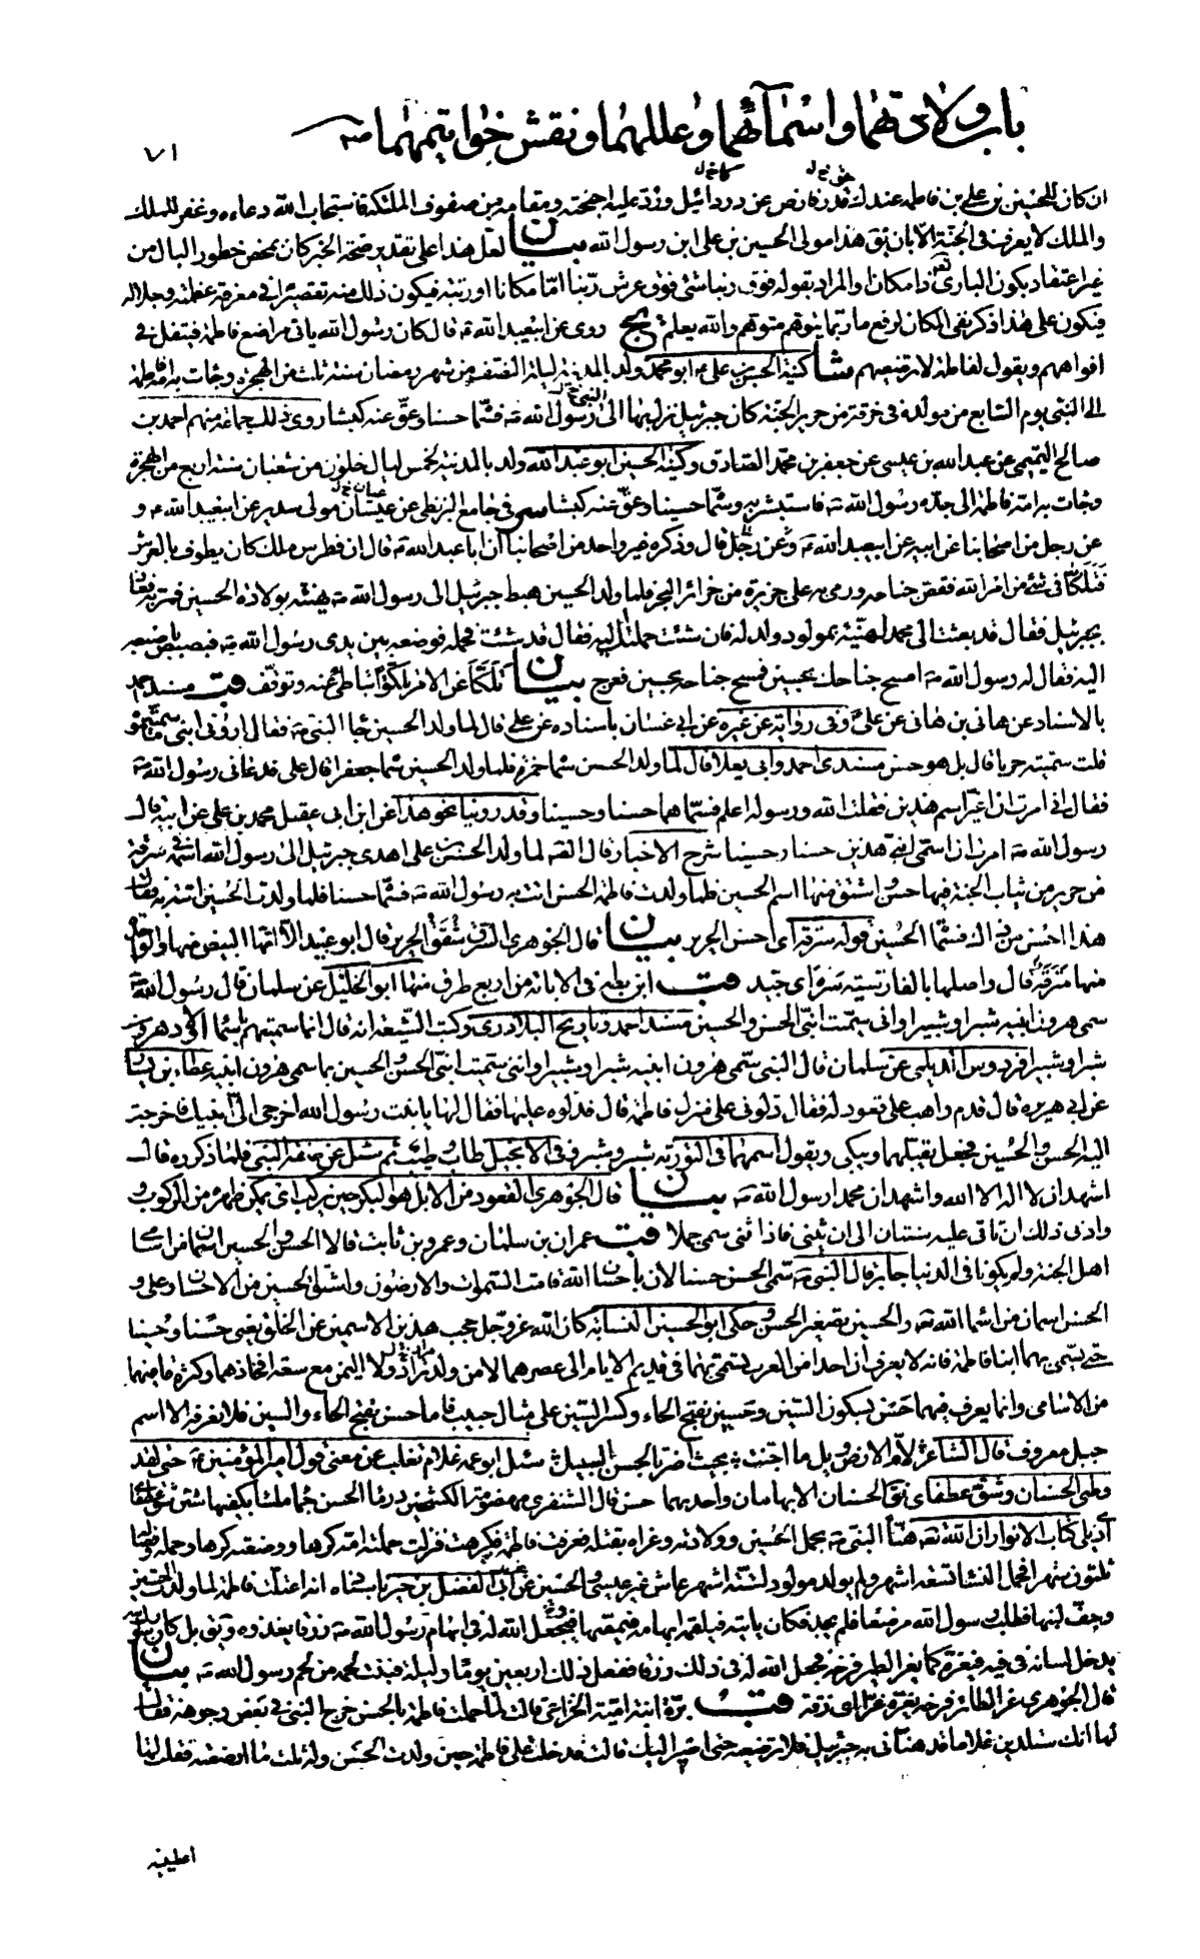 باب ولادتهما و اسمآئهما و عللهما و نقش خواتيمهما ص
٧١
ان كان للحسين بن علي بن فاطمة عندك قدر فارض عن دردائيل ورد عليه اجنحته ومقامه من صفوف الملئكة فاستجاب الله دعاءه وغفر للملك
والملك لا يعرف في الجنة الا بان يق هذا مولى الحسين بن على ابن رسول الله بيان لعل هذا على تقدير صحة الخبر كان بمحض خطور البال من
غير اعتقاد بكون البارى تع ذا مكان او المراد بقوله فوق ربنا شئ فوق عرش ربنا امّا مكانا او رتبة فيكون ذلك منه تقصيرا في معرفة عظمته وجلاله
فيكون على هذا ذكر نفى المكان لرفع ما ربّما يتوهم متوهم والله يعلم يج روى عن ابيعبد الله ع قال كان رسول الله ياتي مراضع فاطمة فيتفل في
افواههم ويقول لفاطمة لا ترضعيهم شا كنية الحسن بن علي ع ابو محمد ولد بالمدينة ليلة النصف من شهر رمضان سنة ثلث من الهجرة وجاءت به امه فاطمة
الى النبي يوم السابع من مولده في خرقة من حرير الجنة كان جبرئيل نزل بها الى رسول الله ص فسمّا حسنا وعقّ عنه كبشا روى ذلك جماعة منهم احمد بن
صالح التميمي عن عبد الله بن عيسى عن جعفر بن محمد الصادق وكنية الحسين ابو عبد الله ولد بالمدينة لخمس ليال خلون من شعبان سنة اربع من الهجرة
وجاءت به امه فاطمة الى جده رسول الله ص فاستبشر به وسمّا حسينا وعقّ عنه كبشا سر في جامع البزنطي عن عيسان مولى سدير عن ابيعبد الله ع و
عن رجل من اصحابنا عن ابيه عن ابيعبد الله ع وعن رجل قال وذكره غير واحد من اصحابنا ان ابا عبد الله ع قال ان فطرس ملك كان يطوف بالعرش
فتلكّأ في شئ من امر الله فقص جناحه ورمى به على جزيرة من جزائر البحر فلما ولد الحسين هبط جبرئيل الى رسول الله ص يهنئه بولادة الحسين فمر به فعاذ
بجبرئيل فقال قد بعثت الى محمد اهنّئه بمولود ولد له فان شئت حملتك اليه فقال قد شئت فحمله فوضعه بين يدى رسول الله ص فبصبص باصبعه
اليه فقال له رسول الله ص امسح جناحك بحسين فمسح جناحه بحسين فعرج بيان تلكّأ عن الامر تلكّؤا تباطأ عنه وتوقف قب مسند احمد
بالاسناد عن هاني بن هاني عن عليّ وفي رواية عن غيره عن ابي غسان باسناده عن علي قال لما ولد الحسين جا النبي ص فقال اروني ابنى ما سمّيتموه
قلت سميته حربا قال بل هو حسن مسندى احمد وابي يعلا قال لما ولد الحسن سماه حمزة فلما ولد الحسين سماه جعفرا قال علي فدعاني رسول الله ص
فقال اني امرت ان اغيّر اسم هذين فقلت الله ورسوله اعلم فسمّاهما حسنا وحسينا وقد روينا نحو هذا عن ابن ابى عقيل محمد بن علي عن ابيه قال
رسول الله ص امرت ان اسمى ابني هذين حسنا وحسينا شرح الاخبار قال الص لما ولد الحسن بن علي اهدى جبرئيل الى رسول الله اسمه في سرقة
من حرير من ثياب الجنة فيها حسن واشتق منها اسم الحسين فلما ولدت فاطمة الحسن اتت به رسول الله ص فسمّا حسنا فلما ولدت الحسين اتته به فقال
هذا احسن من ذاك فسمّا الحسين قوله سرقة اى احسن الحرير بيان قال الجوهرى السرق شقق الحرير قال ابو عبيد الّا انّها البيض منها والواحدة
منها سرقة قال واصلها بالفارسية سره اى جيد قب ابن بطة في الابانة من اربع طرق منها ابو الخليل عن سلمان قال رسول الله ص
سمى هرون ابنيه شبرا وشبيرا واني سمّيت ابنيّ الحسن والحسين مسند احمد وتاريخ البلاذرى وكتب الشيعة انه قال انما سميتهم باسماء اولاد هرون
شبرا وشبيرا فردوس الديلمي عن سلمان قال النبي سمّى هرون ابنيه شبرا وشبيرا وانني سميت ابنيّ الحسن والحسين بما سمى هرون ابنيه عطاء بن يسار
عن ابي هريرة قال قدم راهب على قعود له فقال دلّوني على منزل فاطمة قال فدلّوه عليها فقال لها يا بنت رسول الله اخرجي الىّ ابنيك فاخرجت
اليه الحسن والحسين فجعل يقبلهما ويبكي ويقول اسمهما في التورية شبر وشبير وفي الانجيل طاب وطيّب ثم سئل عن صفة النبي فلما ذكروه قال
اشهد ان لا اله الا الله واشهد ان محمدا رسول الله ص بيان قال الجوهرى القعود من الابل هو البكر حين يركب اى يمكّن ظهره من الركوب و
وادنى ذلك ان تاتي عليه سنتان الى ان يثني فاذا اثنى سمى جملا قب عمران بن سلمان وعمرو بن ثابت قالا الحسن والحسين اسمان من اسامي
اهل الجنة ولم يكونا في الدنيا جابر قال النبي ص سمّى الحسن حسنا لان باحسان الله قامت السموات والارضون واشتق الحسين من الاحسان وعلي و
الحسن اسمان من اسما الله تع والحسين تصغير الحسن وحكى ابو الحسين النسابة كان الله عز وجل حجب هذين الاسمين عن الخلق يعني حسنا وحسينا
حتى يسمّى بهما ابنا فاطمة فانه لا يعرف ان احدا من العرب تسمّى بهما في قديم الايام الى عصرهما لا من ولد نزار ولا اليمن مع سعة افخاذهما وكثرة ما فيهما
من الاسامي وانما يعرف فيهما حسن بسكون السين وحسين بفتح الحاء وكسر السين على مثال حبيب فاما حسن بفتح الحاء والسين فلا نعرفه الا اسم
جبل معروف قال الشاعر لامّ الارض ويل ما اجنت بحيث اضرّ بالحسن السبيل سئل ابو عمر غلام ثعلب عن معنى قول امير المؤمنين ع حتى لقد
وطئ الحسنان وشق عطفاى يق الحسنان الابهامان واحدهما حسن قال الشنفرى مهضومة الكشحين درما الحسن جما ملسا بكفيها شثن شق عطفاى
اى ذيلي كتاب الانوار ان الله تع هنّأ النبي ص بحمل الحسين وولادته وعزاه بقتله فعرفت فاطمة فكرهت فنزلت حملته امه كرها ووضعته كرها وحمله وفصاله
ثلثون شهرا فحمل النسا تسعة اشهر ولم يولد مولود لستة اشهر عاش غير عيسى والحسين غرر ابى الفضل بن خيرانة باسناه انه اعتلت فاطمة لما ولدت الحسين
وجفّ لبنها فطلب رسول الله مرضعا فلم يجد فكان ياتيه فيلقمه ابهامه فيمصّها فيجعل الله له في ابهام رسول الله ص رزقا يغذوه ويق بل كان رسول الله
يدخل لسانه في فيه فيغره كما يغر الطير فرخه فيجعل الله له في ذلك رزقا ففعل ذلك اربعين يوما وليلة فنبت لحمه من لحم رسول الله ص بيان
قال الجوهرى غر الطائر فرخه يغرّه غرّا اى زقه قب برّة ابنة امية الخزاعي قالت لما حملت فاطمة بالحسن خرج النبي في بعض وجوهه فقال
لها انك ستلدين غلاما قد هنّأني به جبرئيل فلا ترضعيه حتى اصير اليك قالت فدخلت على فاطمة حين ولدت الحسن وله ثلث ما ارضعته فقلت لها
اعطينيه